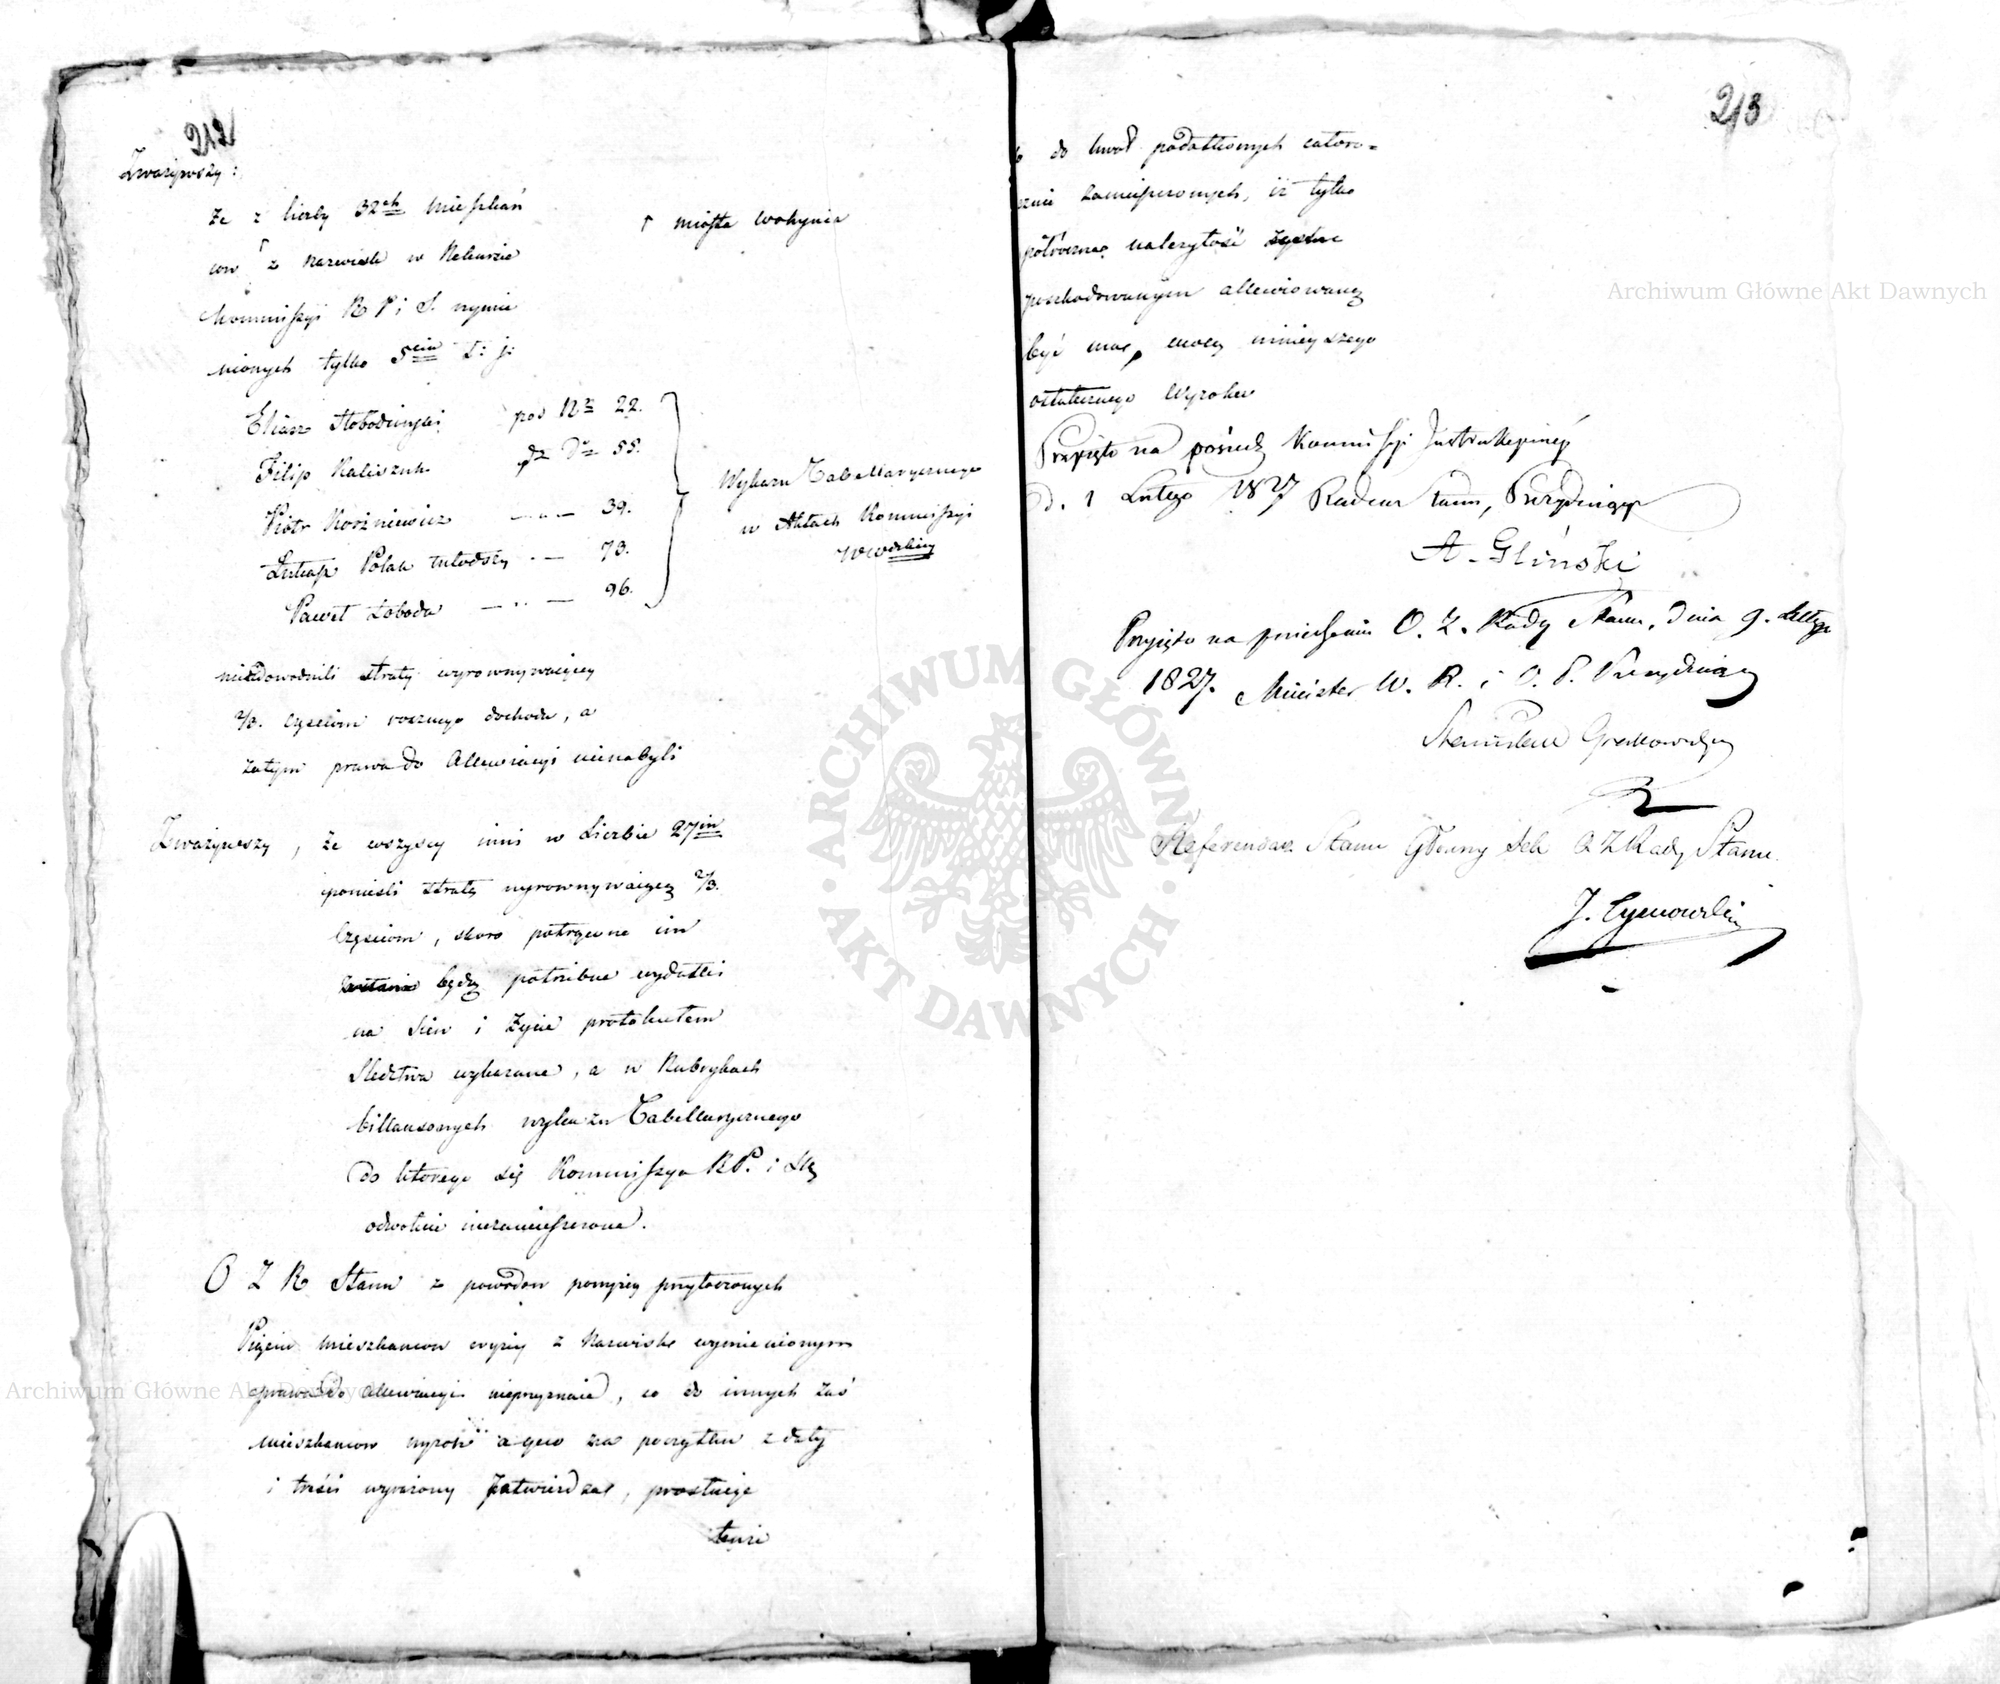 212
Zważywszy:
że z liczby 32ch Mieszkań
ców ↑ z nazwisk w Rekursie
Kommissyi R P i S. wymie
nionych tylko 5ciu t: j:
↑ miasta Wohynia
Eliasz Słobodzinski pod Nr 22.
Filip Kaliszuk do do 55.
Piotr Koźniewicz — „ — 39.
Łukasz Polak młodszy „ — 73.
Paweł Łoboda — „ — 96.
Wykazu Tabellarycznego
w Aktach Kommissyi
Wwdzkiey
nieudowodnili straty wyrownywaiącey
2/3. częściom rocznego dochodu, a
zatym prawa do Allewiacyi nienabyli
Zważywszy, że wszyscy inni w Liczbie 27iu
ponieśli stratę wyrownywaiącą 2/3.
Częściom, skoro potrącone im
będą potrzebne wydatki
na Siew i Życie protokułem
Sledztwa wykazane, a w Rubrykach
billansowych wykazu Tabellarycznego
do ktorego się Kommissya R P. i S.
odwołuie niezamieszczone.
O Z R Stanu z powodow powyżey przytoczonych
Pięciu mieszkancom wyżey z Nazwisk wymienionym
prawa do allewiacyi nieprzyznaie, co do innych zaś
mieszkancow wyrok a quo na początku z daty
i treści wyrażony zatwierdza, prostuie
tenże
213
co do kwot podatkowych caloro-
cznie zamieszczonych, iż tylko
półroczna należytość
poszkodowanym allewiowaną
być ma, mocą ninieyszego
ostatecznego Wyroku
Przyięto na posiedz Kommissyi Instrukcyinéy
d. 1 Lutego 1827 Radca Stanu, Prezyduiący
A. Gliński
Przyięto na posiedzeniu O. Z. Rady Stanu, dnia 9. Lutego
1827. Minister W. R. i O. P. Prezyduiący
Stanisław Grabowski
Referendarz Stanu Główny Sek O Z Rady Stanu.
Archiwum Główne Akt Dawnych
Archiwum Główne Akt Dawnych
ARCHIWUM GŁÓWNE · AKT DAWNYCH ·